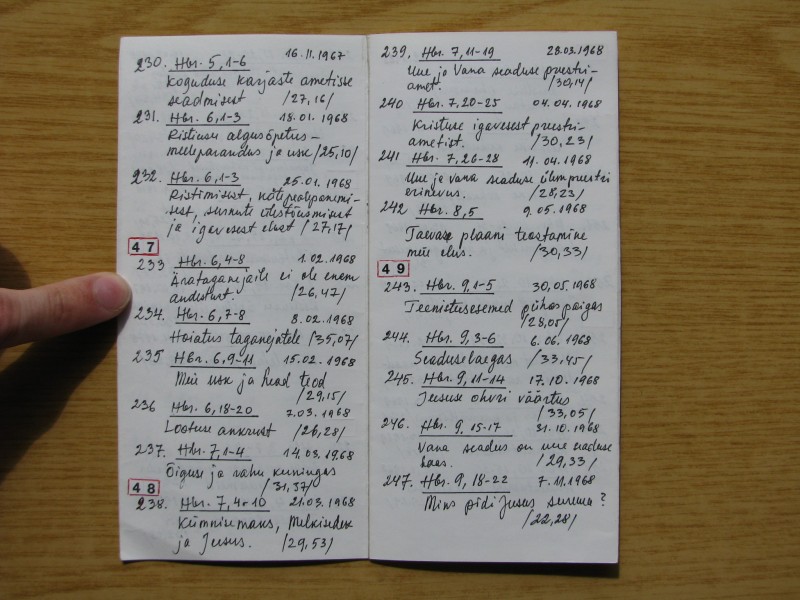 230. Hbr. 5,1-6 16.11.1967
Koguduse karjaste ametisse
seadmisest /27,16/
231. Hbr. 6,1-3 18.01.1968
Ristiusu algusõpetus -
meeleparandus ja usk /25,10/
232. Hbr. 6,1-3 25.01.1968
Ristimisest, kätepealepanemi-
sest, surnute ülestõusmisest
ja igavesest elust /27,17/
47
233 Hbr. 6,4-8 1.02.1968
Ärataganejaile ei ole enam
andestust. /26,47/
234. Hbr. 6,7-8 8.02.1968
Hoiatus taganejatele /35,07/
235 Hbr. 6,9-11 15.02.1968
Meie usk ja head teod
/29,15/
236 Hbr. 6,18-20 7.03.1968
Lootuse ankrust /26,28/
237. Hbr. 7,1-4 14.03.1968
Õiguse ja rahu kuningas
/31,37/
48
238. Hbr. 7,4-10 21.03.1968
Kümnisemaks, Melkisedek
ja Jeesus. /29,53/
239. Hbr. 7,11-19 28.03.1968
Uue ja Vana seaduse preestri-
amet. /30,14/
240 Hbr. 7,20-25 04.04.1968
Kristuse igavesest preestri-
ametist. /30,23/
241 Hbr. 7,26-28 11.04.1968
Uue ja vana seaduse ülempreestri
erinevus. /28,23/
242 Hbr. 8,5 9.05.1968
Taevase plaani teostamine
meie elus. /30,33/
49
243. Hbr. 9,1-5 30.05.1968
Teenistusesemed pühas paigas
/28,05/
244. Hbr. 9,3-6 6.06.1968
Seaduselaegas /33,45/
245. Hbr. 9,11-14 17.10.1968
Jeesuse ohvri väärtus
/33,05/
246. Hbr. 9,15-17 31.10.1968
Vana seadus on uue seaduse
/29,33/
247. Hbr. 9,18-22 7.11.1968
Miks pidi Jeesus surema?
/22,28/